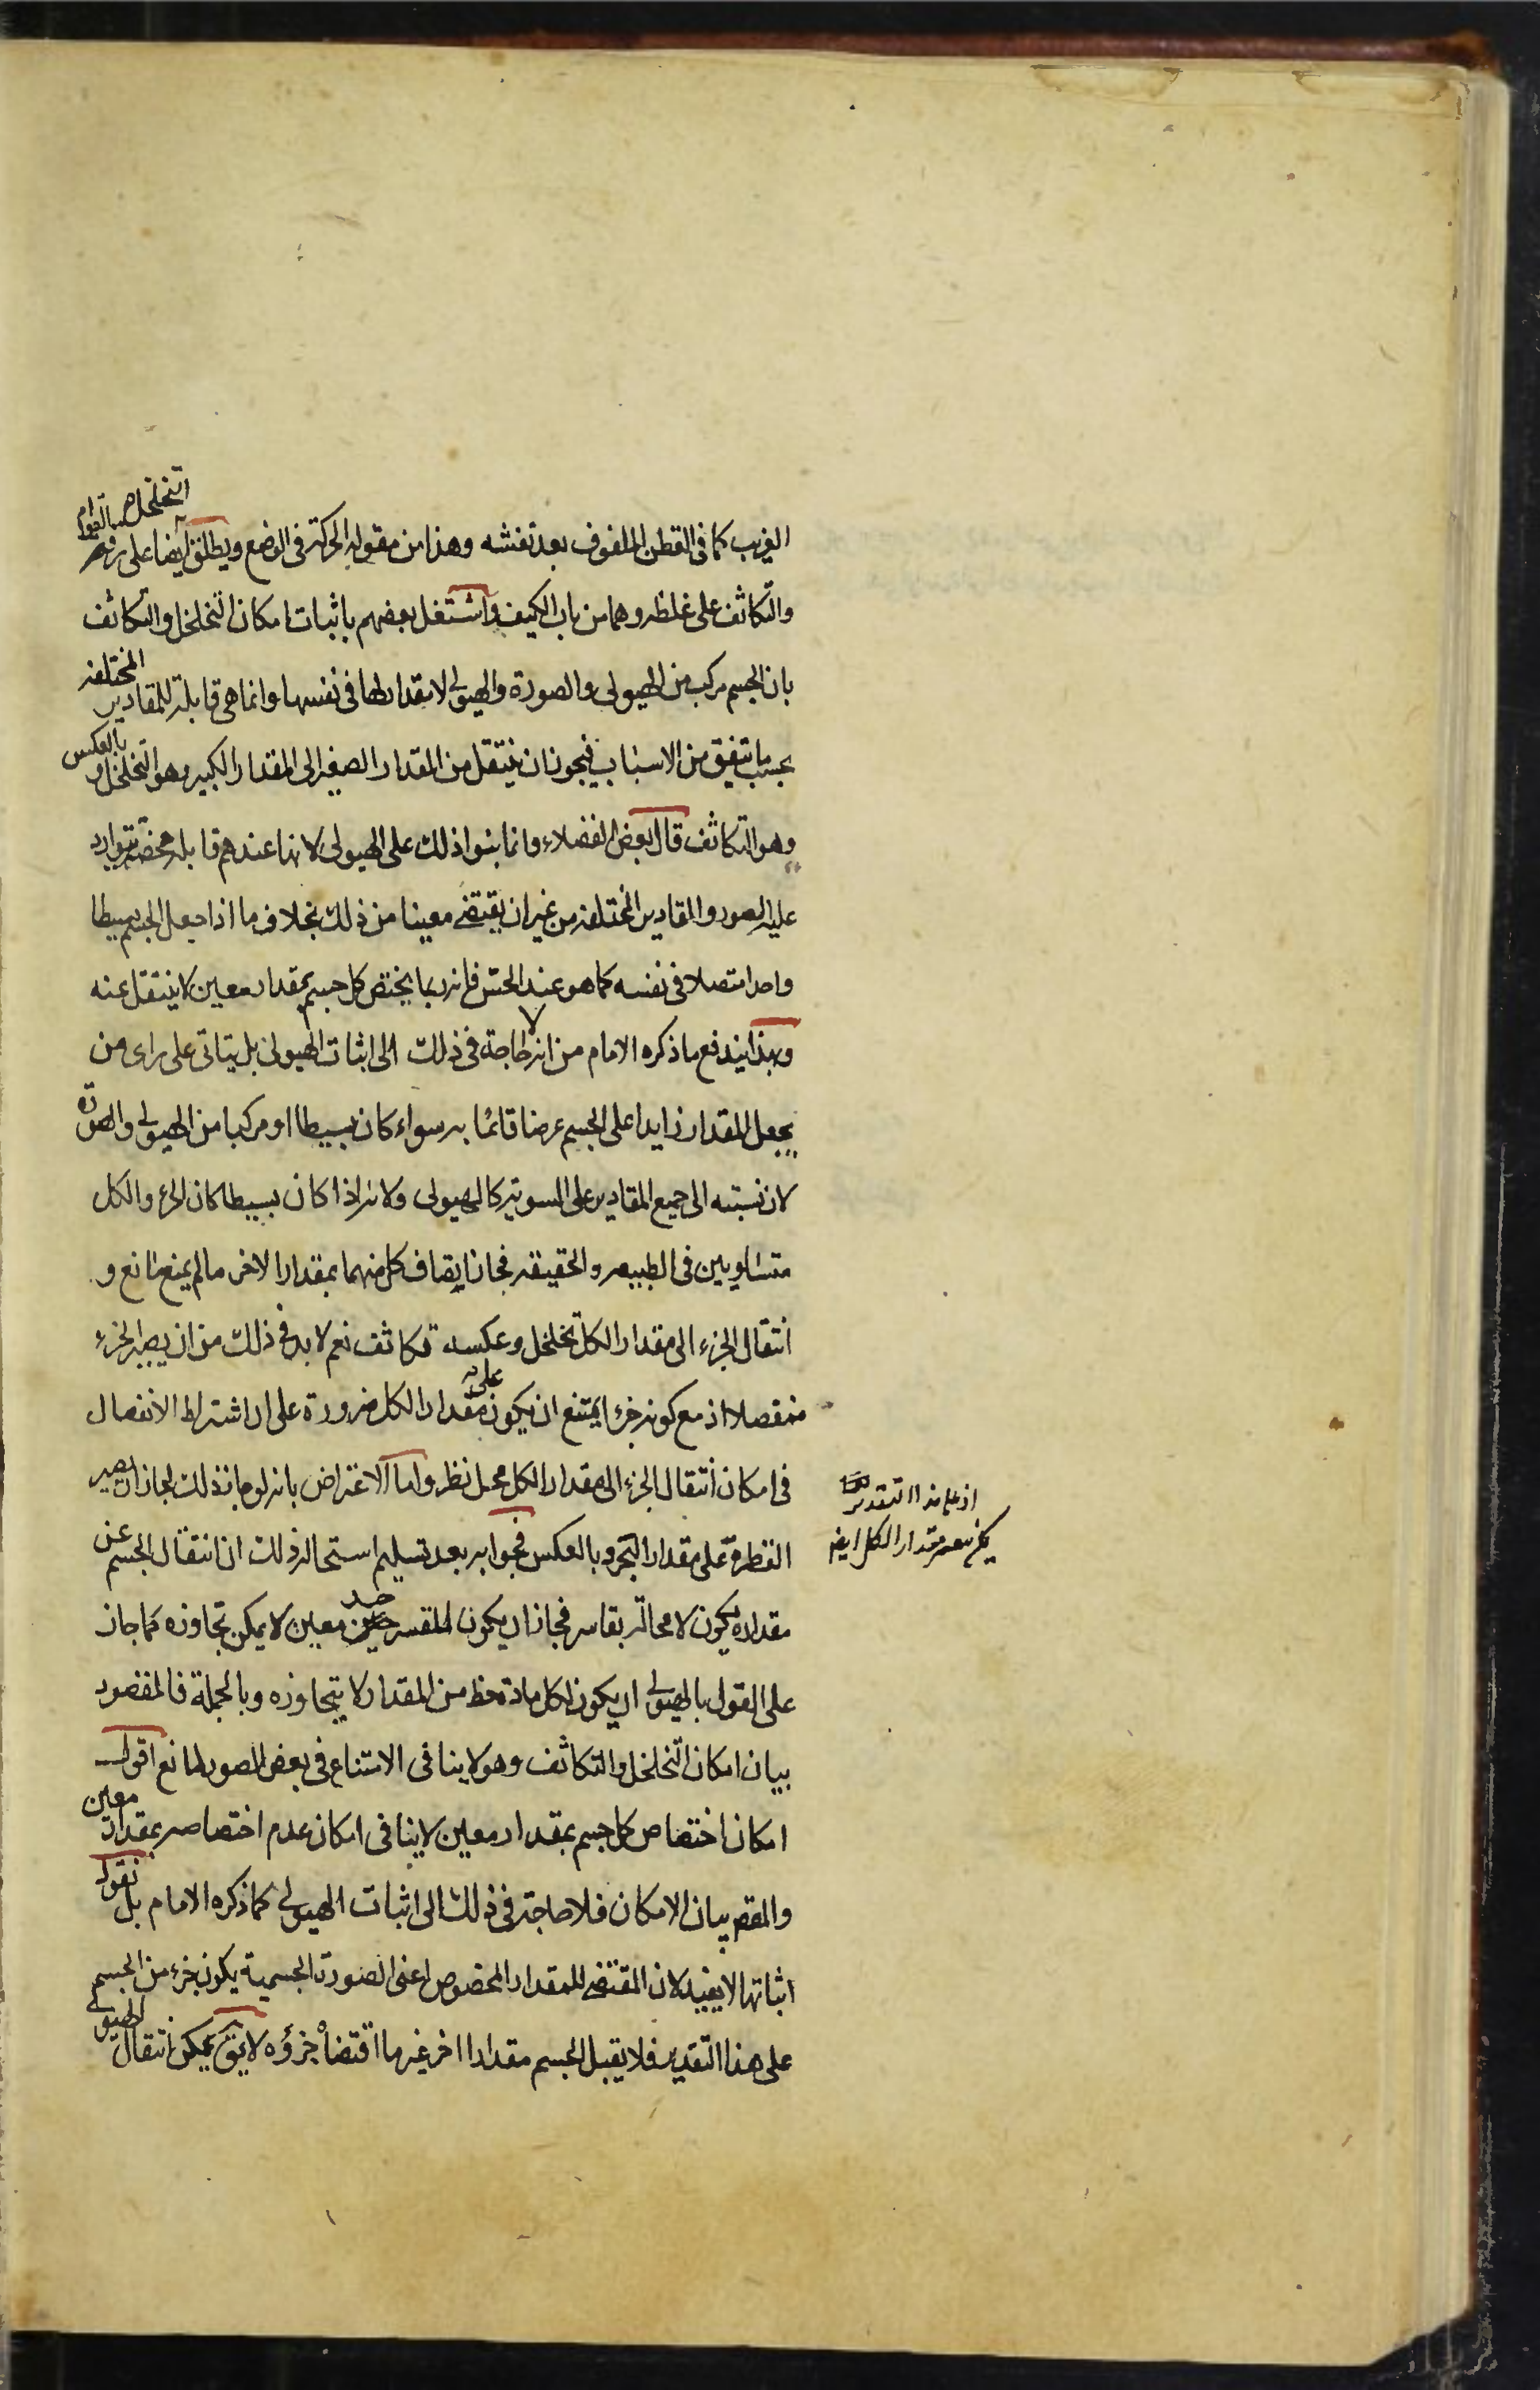 الغريب كما في القطن الملفوف بعد نفشه وهذا من مقولة الحركة في الوضع ويطلق ايضا التخلخل على رقة القوام
والتكاثف على غلظه وهما من باب الكيف واشتغل بعضهم باثبات امكان التخلخل والتكاثف
بان الجسم مركب من الهيولى والصورة والهيولى لا مقدار لها في نفسها وانما هي قابلة للمقادير المختلفة
بحسب ما يتفق من الاسباب فيجوز ان ينتقل من المقدار الصغير الى المقدار الكبير وهو التخلخل وبالعكس
وهو التكاثف قال بعض الفضلاء وانما بنوا ذلك على الهيولى لانها عندهم قابلة محضة يتوارد
عليه الصور والمقادير المختلفة من غير ان يقتضي معينا من ذلك بخلاف ما اذا جعل الجسم بسيطا
واحدا متصلا في نفسه كما هو عند الحس فانه ربما يختص كل جسم بمقدار معين لا ينتقل عنه
وبهذا يندفع ما ذكره الامام من انه لا حاجة في ذلك الى اثبات الهيولى بل يتاتى على راى من
يجعل المقدار زايدا على الجسم عرضا قائما به سواء كان بسيطا او مركبا من الهيولى والصورة
لان نسبته الى جميع المقادير على السوية كالهيولى ولانه اذا كان بسيطا كان الجزء والكل
متساويين في الطبيعه والحقيقة فجاز اتصاف كل منهما بمقدار الاخر ما لم يمنع مانع و
انتقال الجزء الى مقدار الكل تخلخل وعكسه تكاثف نعم لا بد في ذلك من ان يصير الجزء
منفصلا اذ مع كونه جزءا يمتنع ان يكون على مقدار الكل ضرورة على ان اشتراط الانفصال
في امكان انتقال الجزء الى مقدار الكل محل نظر واما الاعتراض بانه لو جاز ذلك لجاز ان يصير
القطرة على مقدار البحر وبالعكس فجوابه بعد تسليم استحالة ذلك ان انتقال الجسم عن
مقداره يكون لا محالة بقاسر فجاز ان يكون للقسر حد معين لا يمكن تجاوزه كما جاز
على القول بالهيولى ان يكون لكل مادة حظ من المقدار لا يتجاوزه وبالجملة فالمقصود
بيان امكان التخلخل والتكاثف وهو لا ينافى الامتناع في بعض الصور لمانع اقول
امكان اختصاص كل جسم بمقدار معين لا ينافى امكان عدم اختصاصه بمقدار معين
والمقص بيان الامكان فلا حاجة في ذلك الى اثبات الهيولى كما ذكره الامام بل نقول
اثباتها لا يفيد لان المقتضى للمقدار المخصوص اعنى الصورة الجسمية يكون جزء من الجسم
على هذا التقدير فلا يقبل الجسم مقدارا اخر غير ما اقتضاه جزؤه لا يقال يمكن انتقال الهيولى
اذ على هذا التقدير
مقدار الكل ايضا